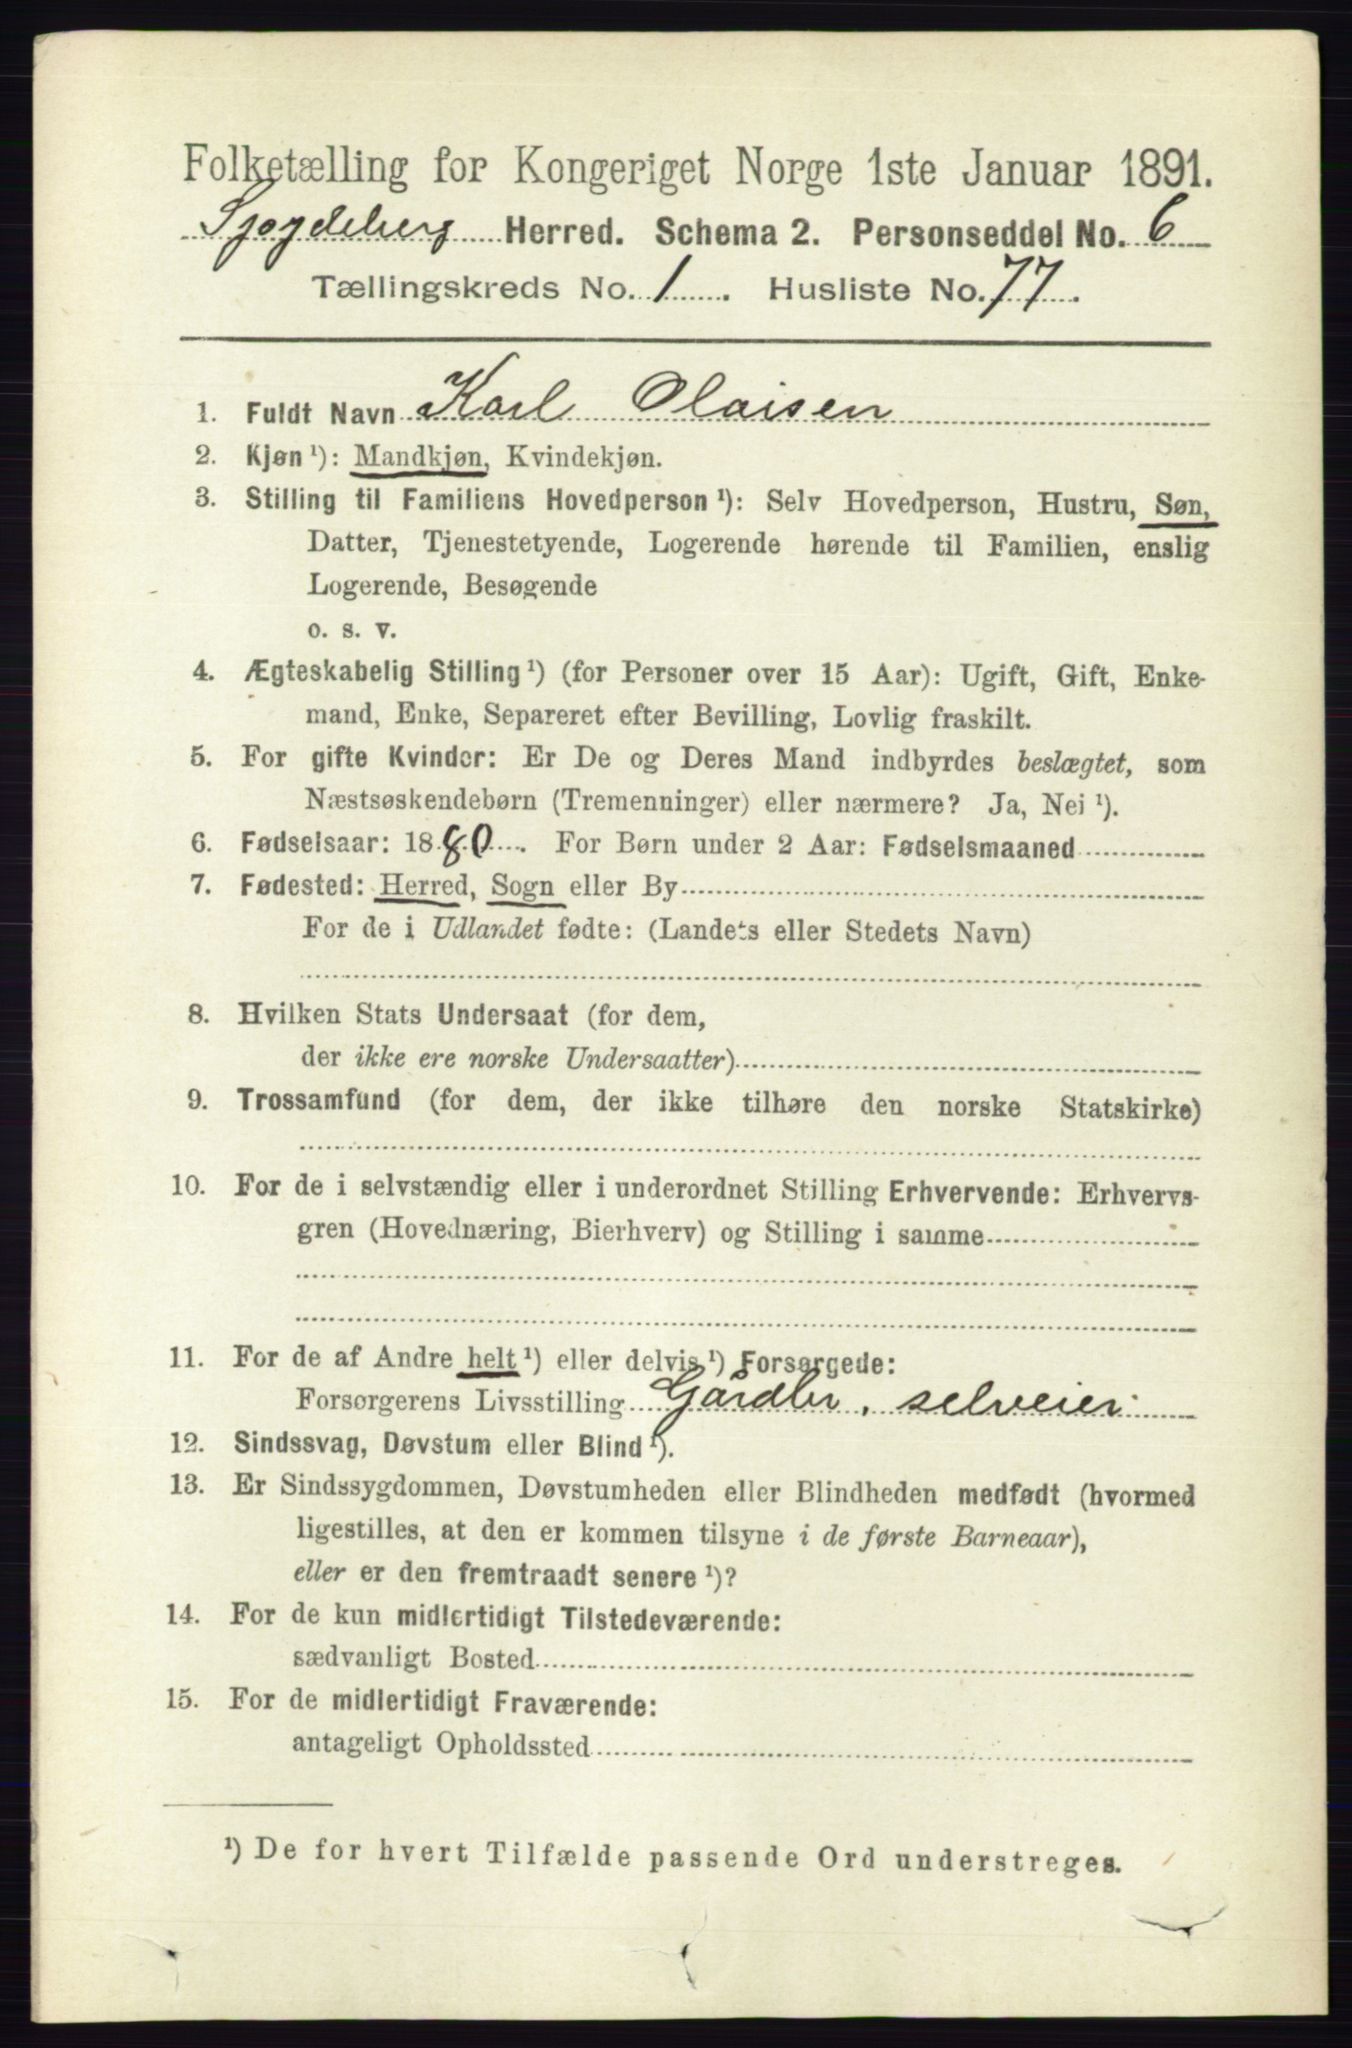 Folketælling for Kongeriget Norge 1ste Januar 1891.
Spydeberg Herred. Schema 2. Personseddel No. 6
Tællingskreds No. 1. Husliste No. 77.
1. Fuldt Navn Karl Olaisen
2. Kjøn ¹): Mandkjøn, Kvindekjøn.
3. Stilling til Familiens Hovedperson ¹): Selv Hovedperson, Hustru, Søn,
Datter, Tjenestetyende, Logerende hørende til Familien, enslig
Logerende, Besøgende
o. s. v.
4. Ægteskabelig Stilling ¹) (for Personer over 15 Aar): Ugift, Gift, Enke-
mand, Enke, Separeret efter Bevilling, Lovlig fraskilt.
5. For gifte Kvinder: Er De og Deres Mand indbyrdes beslægtet, som
Næstsøskendebørn (Tremenninger) eller nærmere? Ja, Nei ¹).
6. Fødselsaar: 1880. For Børn under 2 Aar: Fødselsmaaned
7. Fødested: Herred, Sogn eller By
For de i Udlandet fødte: (Landets eller Stedets Navn)
8. Hvilken Stats Undersaat (for dem,
der ikke ere norske Undersaatter)
9. Trossamfund (for dem, der ikke tilhøre den norske Statskirke)
10. For de i selvstændig eller i underordnet Stilling Erhvervende: Erhvervs-
gren (Hovednæring, Bierhverv) og Stilling i samme
11. For de af Andre helt ¹) eller delvis ¹) Forsørgede:
Forsørgerens Livsstilling Gårdbr, selveier
12. Sindssvag, Døvstum eller Blind ¹).
13. Er Sindssygdommen, Døvstumheden eller Blindheden medfødt (hvormed
ligestilles, at den er kommen tilsyne i de første Barneaar),
eller er den fremtraadt senere ¹)?
14. For de kun midlertidigt Tilstedeværende:
sædvanligt Bosted
15. For de midlertidigt Fraværende:
antageligt Opholdssted
¹) De for hvert Tilfælde passende Ord understreges.